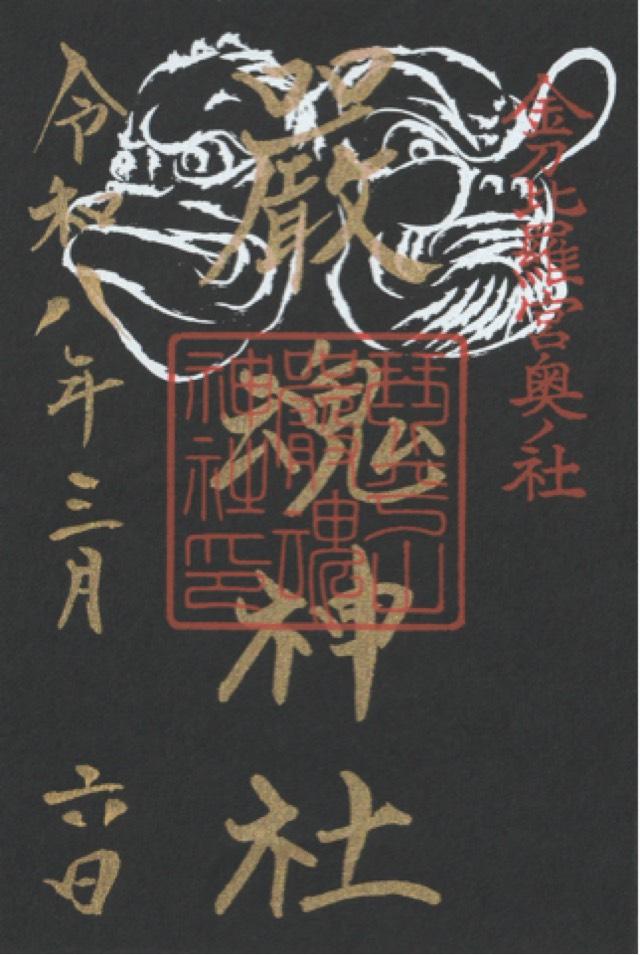 金刀比羅宮奥ノ社
嚴魂神社
琴平山
嚴魂
神社印
令和八年三月六日